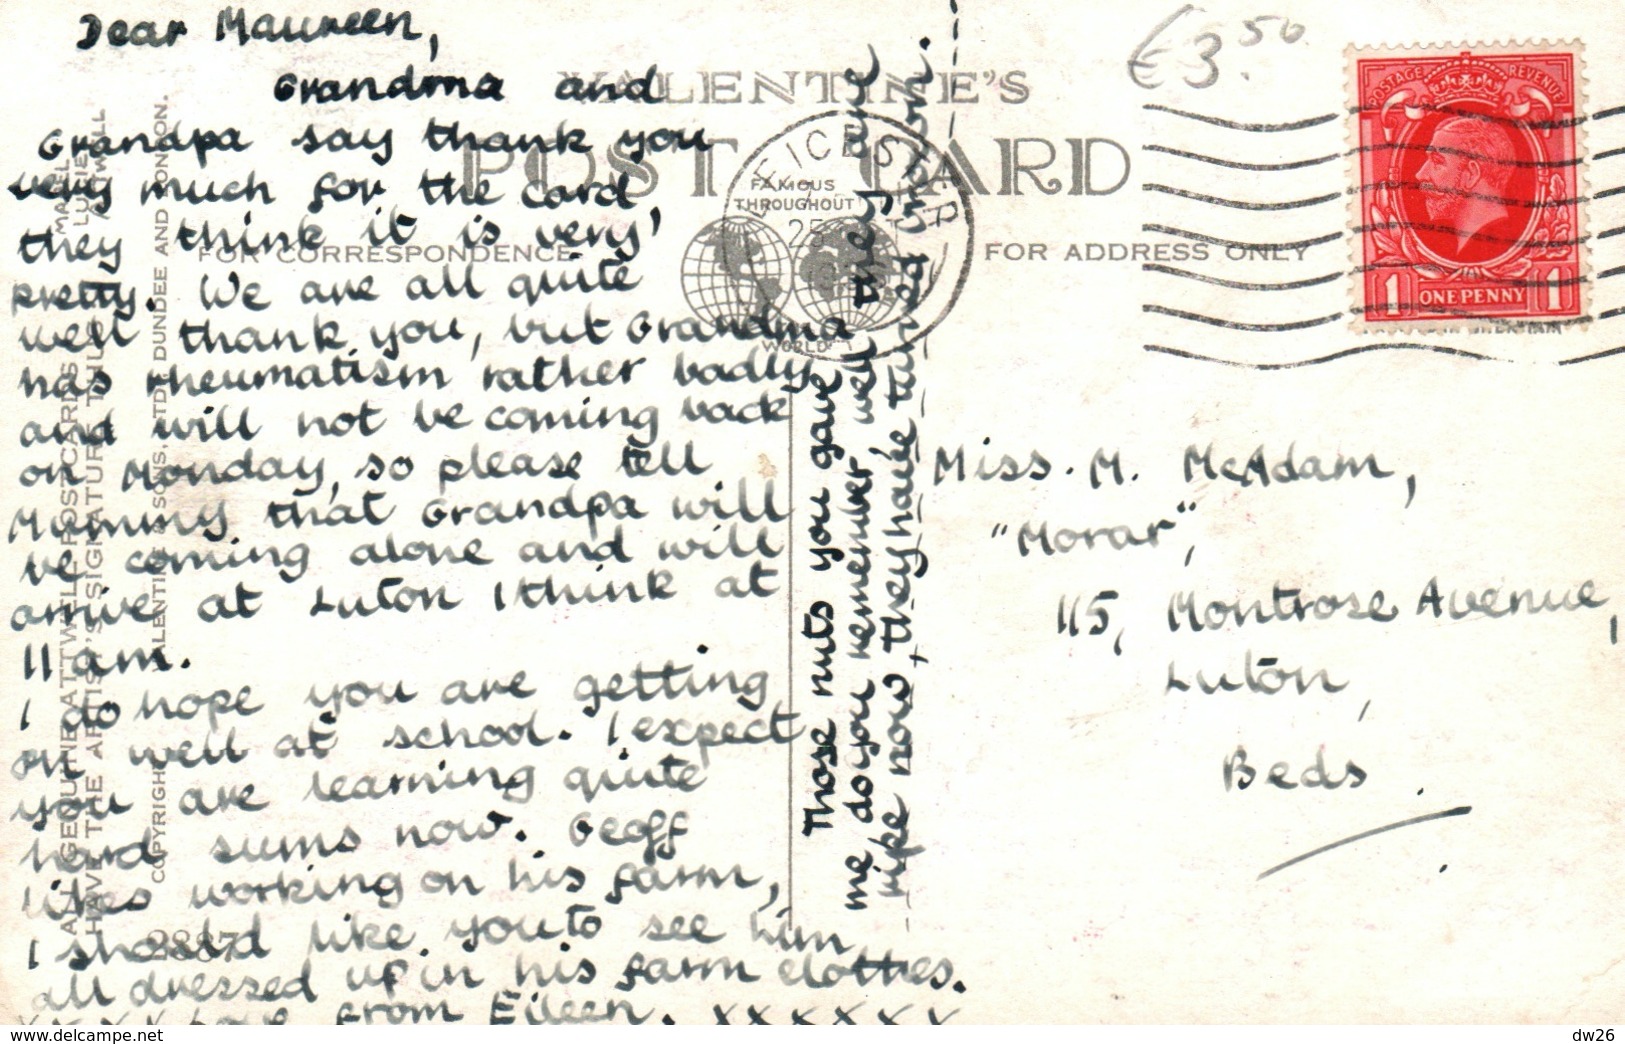 Dear Maureen,
Grandma and
Grandpa say thank you
very much for the card,
they think it is very
pretty. We are all quite
well thank you, but Grandma
has rheumatism rather badly
and will not be coming back
on Monday, so please tell
Mummy that Grandpa will
be coming alone and will
arrive at Luton I think at
11 am.
I do hope you are getting
on well at school. I expect
you are learning quite
hard sums now. Geoff
likes working on his farm,
I should like you to see him
all dressed up in his farm clothes.
x x x x Love from Eileen. x x x x x x x
Those nuts you gave
me do you remember, well they are
ripe now, they have turned
VALENTINE'S
POST CARD
FAMOUS
THROUGHOUT
WORLD
FOR CORRESPONDENCE
FOR ADDRESS ONLY
LEICESTER
25
€3.50
POSTAGE REVENUE
1 ONE PENNY 1
Miss. M. McAdam,
"Morar",
115, Montrose Avenue,
Luton,
Beds.
ALL GENUINE ATTWELL POSTCARDS
HAVE THE ARTIST'S SIGNATURE THUS
MABEL
LUCIE
ATTWELL
COPYRIGHT VALENTINE & SONS, LTD. DUNDEE AND LONDON.
www.delcampe.net
dw26